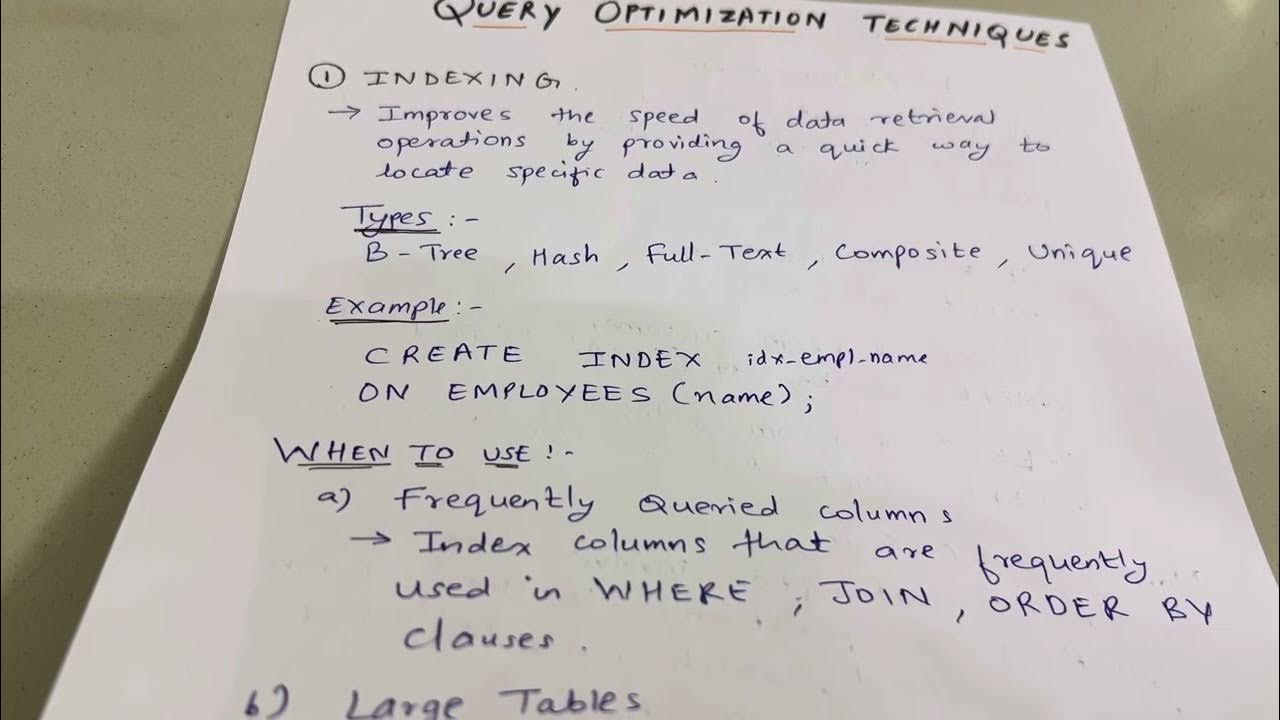 QUERY OPTIMIZATION TECHNIQUES
① INDEXING.
→ Improves the speed of data retrieval
operations by providing a quick way to
locate specific data.
Types :-
B-Tree , Hash , Full-Text , Composite , Unique
Example :-
CREATE INDEX idx_empl_name
ON EMPLOYEES (name);
WHEN TO USE :-
a) Frequently Queried columns
→ Index columns that are frequently
used in WHERE , JOIN , ORDER BY
clauses .
b) Large Tables